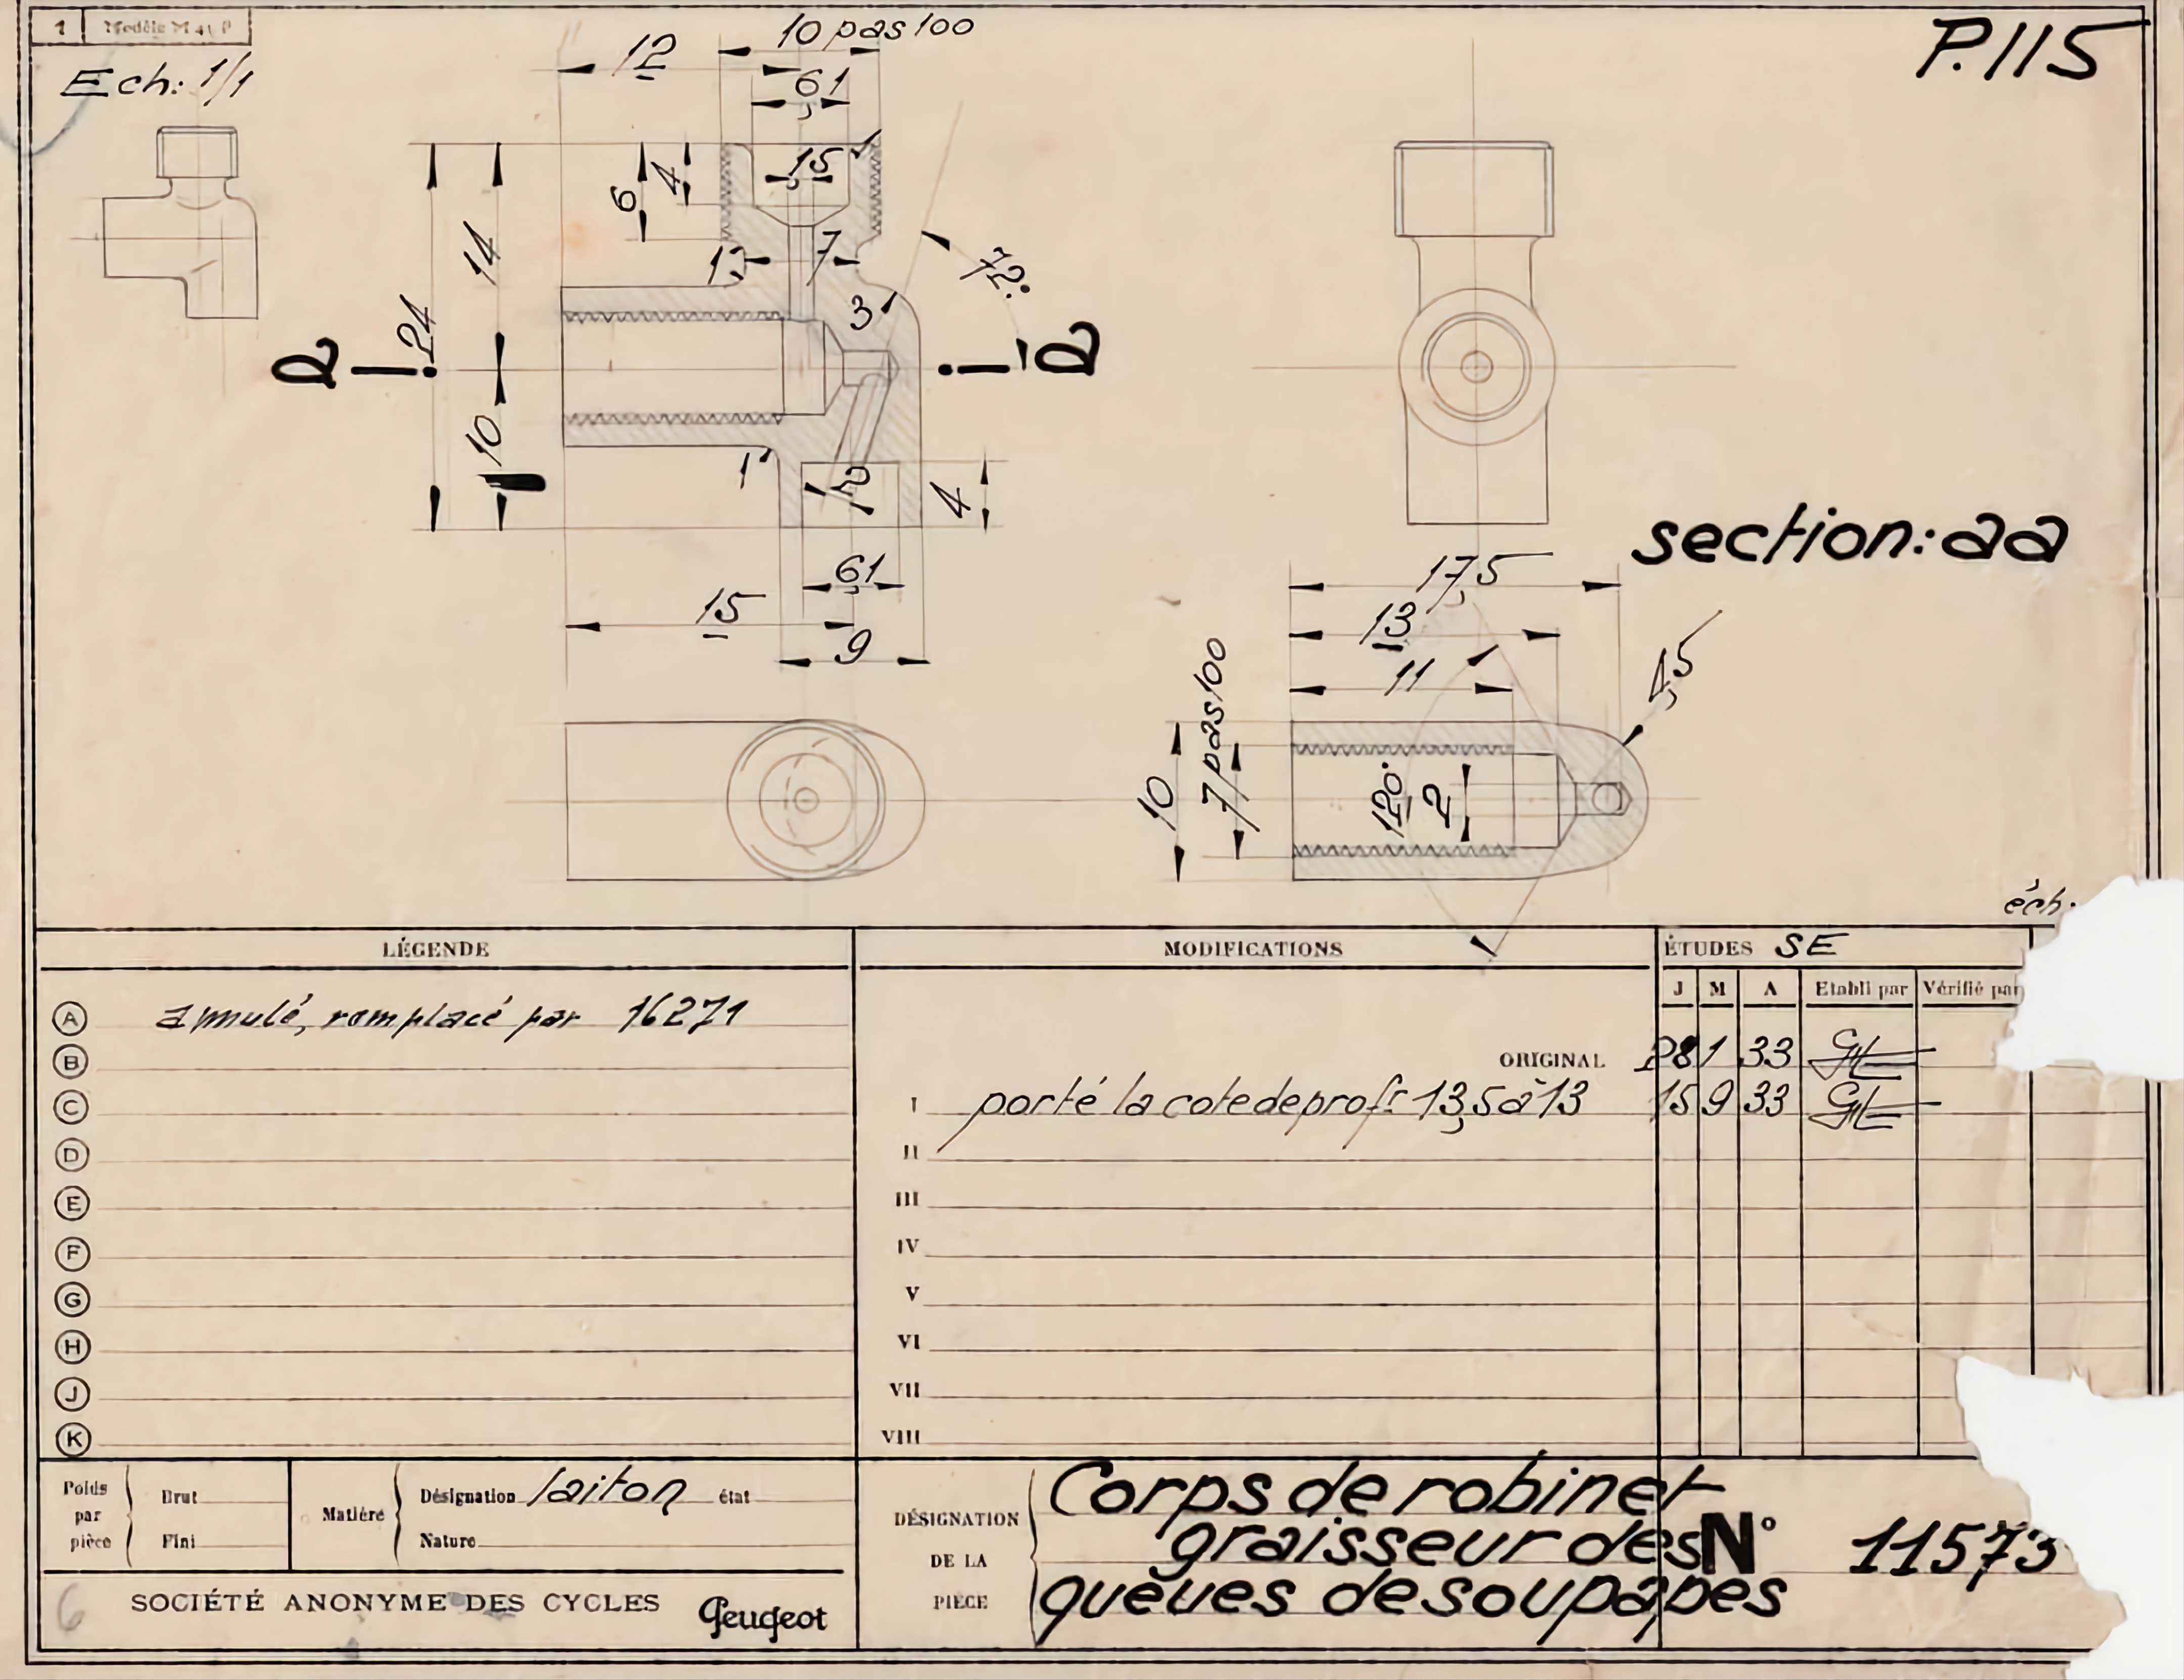 1 Modèle M 41 P
P.115
Ech: 1/1
10 pas 100
12
6,1
1,5
6
4
14
24
1
7
3
72°
a
a
10
1
2
4
6,1
15
9
section: aa
17,5
13
11
4,5
10
7 pas 100
120°
2
éch.
LÉGENDE
A annulé, remplacé par 16271
B
C
D
E
F
G
H
J
K
MODIFICATIONS
ORIGINAL
I porté la cote de profr 13,5 à 13
II
III
IV
V
VI
VII
VIII
ÉTUDES SE
J M A Etabli par Vérifié par
28 1 33
15 9 33
Poids par pièce
Brut
Fini
Matière
Désignation laiton état
Nature
SOCIÉTÉ ANONYME DES CYCLES Peugeot
6
DÉSIGNATION DE LA PIÈCE
Corps de robinet
graisseur des
queues de soupapes
N° 11573